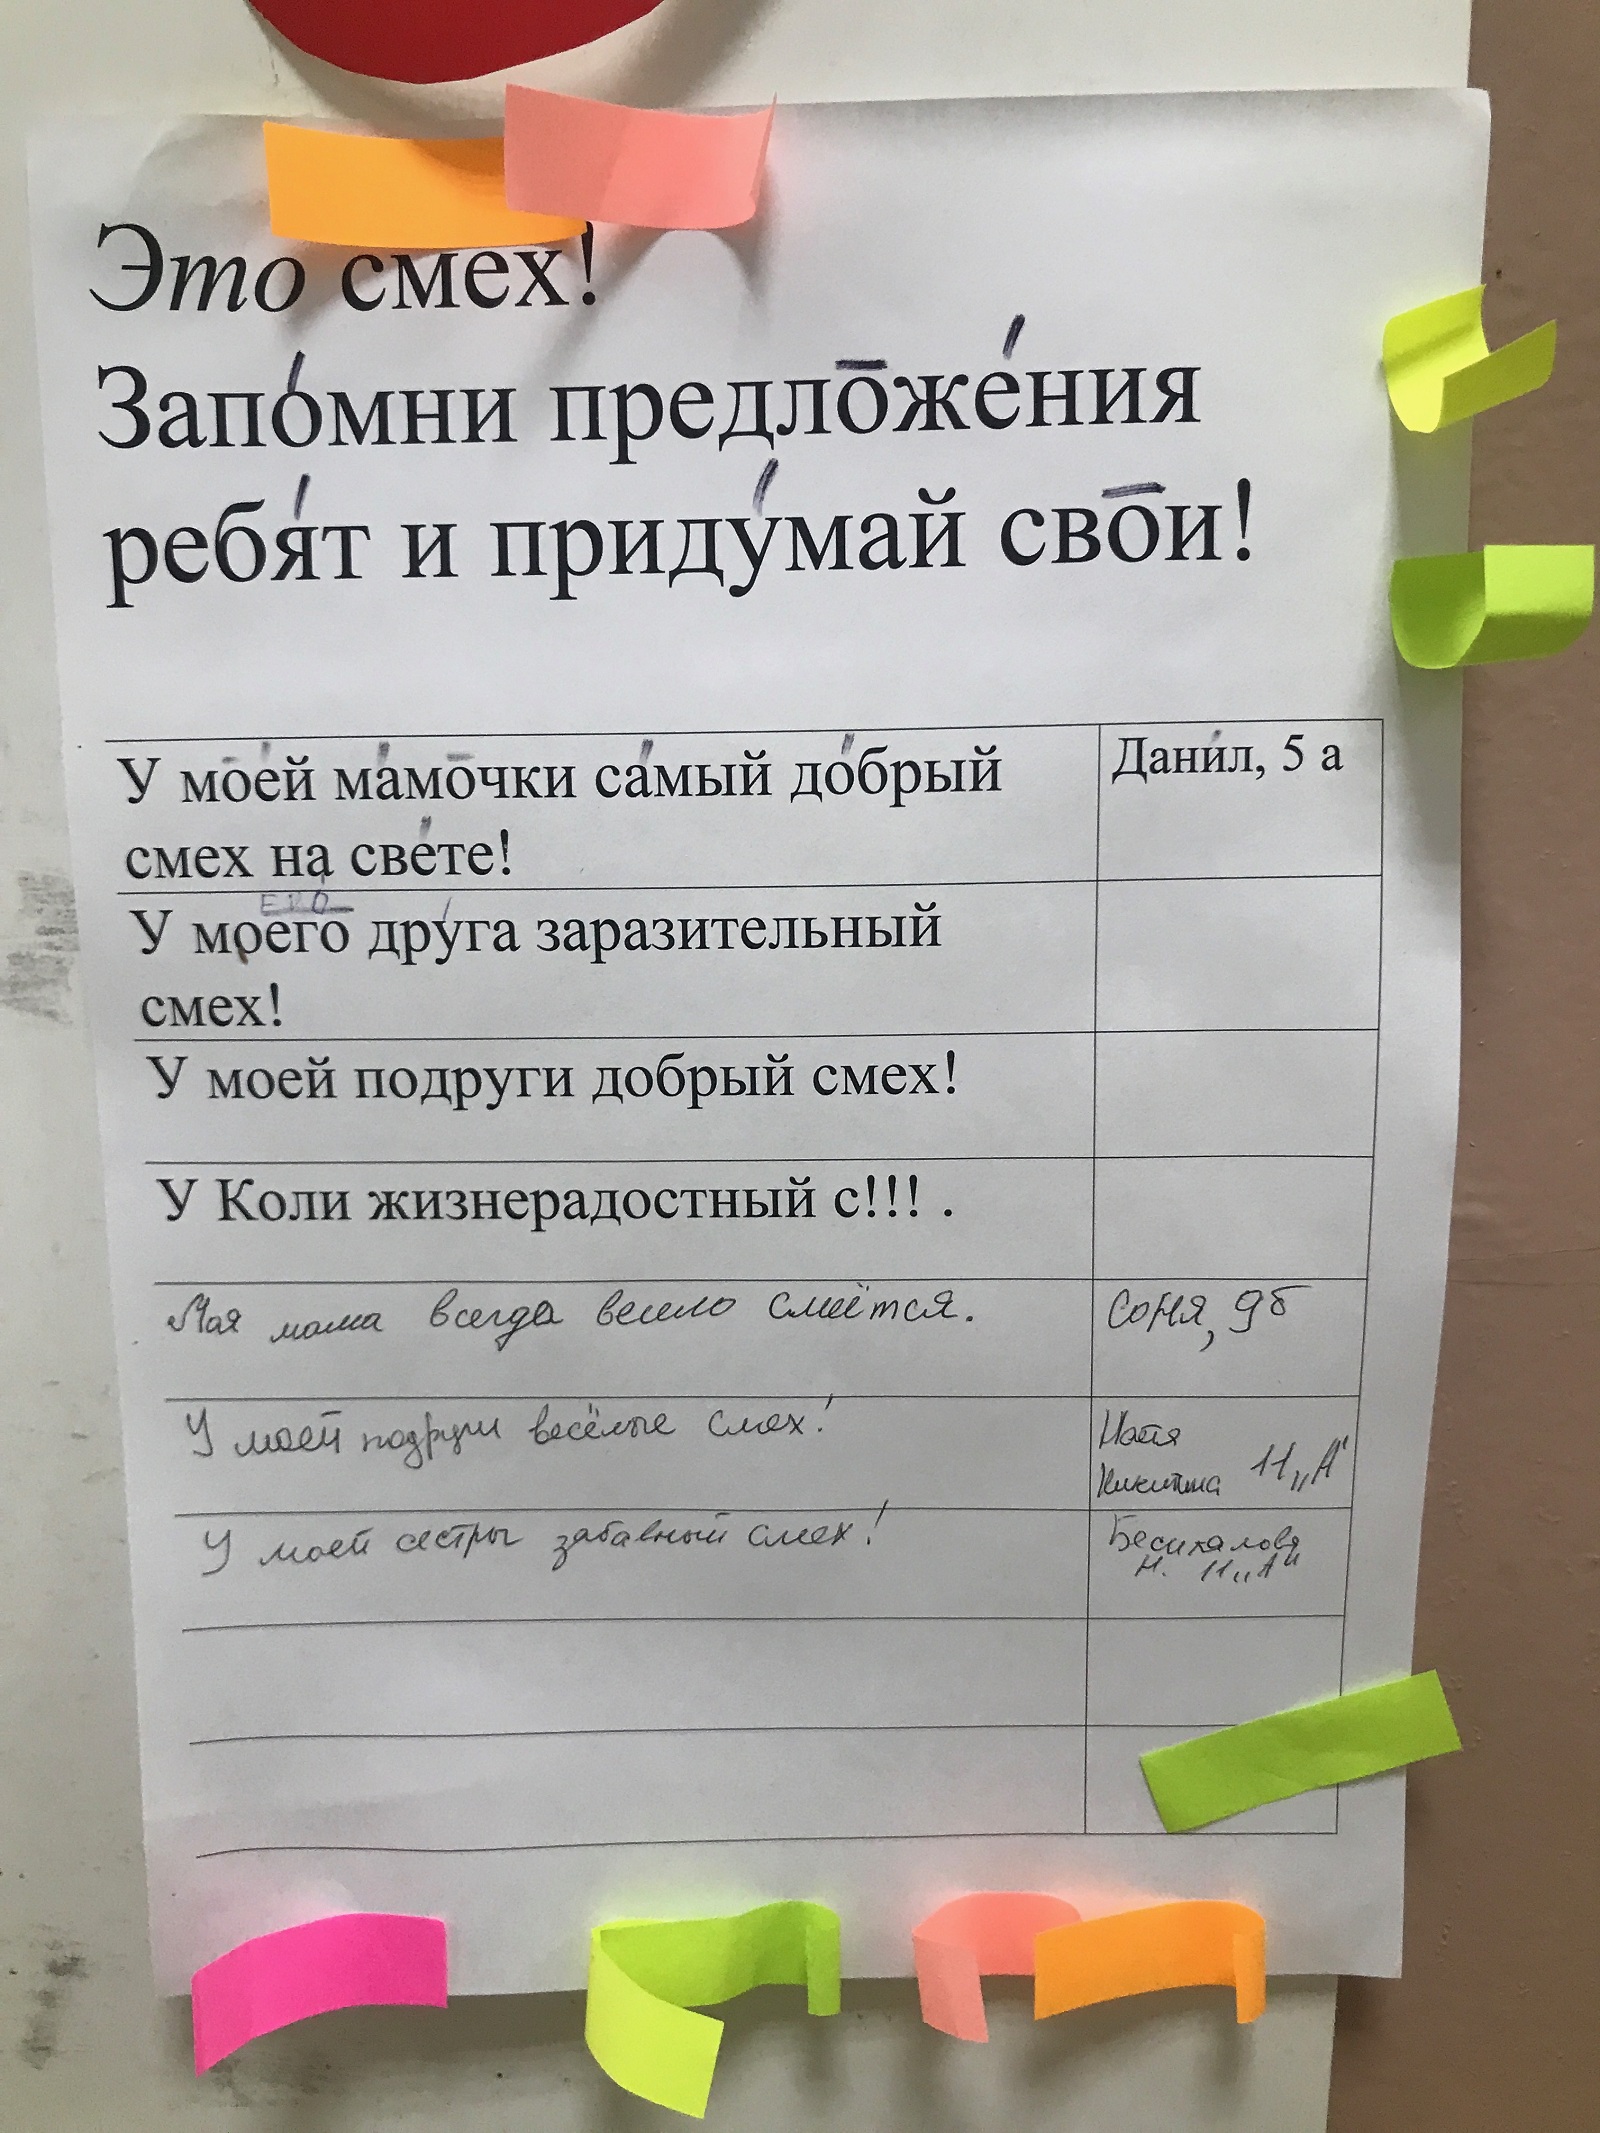 Это смех!
Запо́мни предло̄же́ния
ребя́т и приду́май сво̄и!
У мо̄е́й ма́мо̄чки са́мый до́брый
смех на све́те!
Дани́л, 5 а
ЕВО́
У моего̄ дру́га заразительный
смех!
У моей подруги добрый смех!
У Коли жизнерадостный с!!! .
Мая мама всегда весело смеётся.
Соня, 9б
У моей подруги весёлые смех!
Катя
Никитина 11 „А"
У моей сестры забавный смех!
Н. 11 „А"